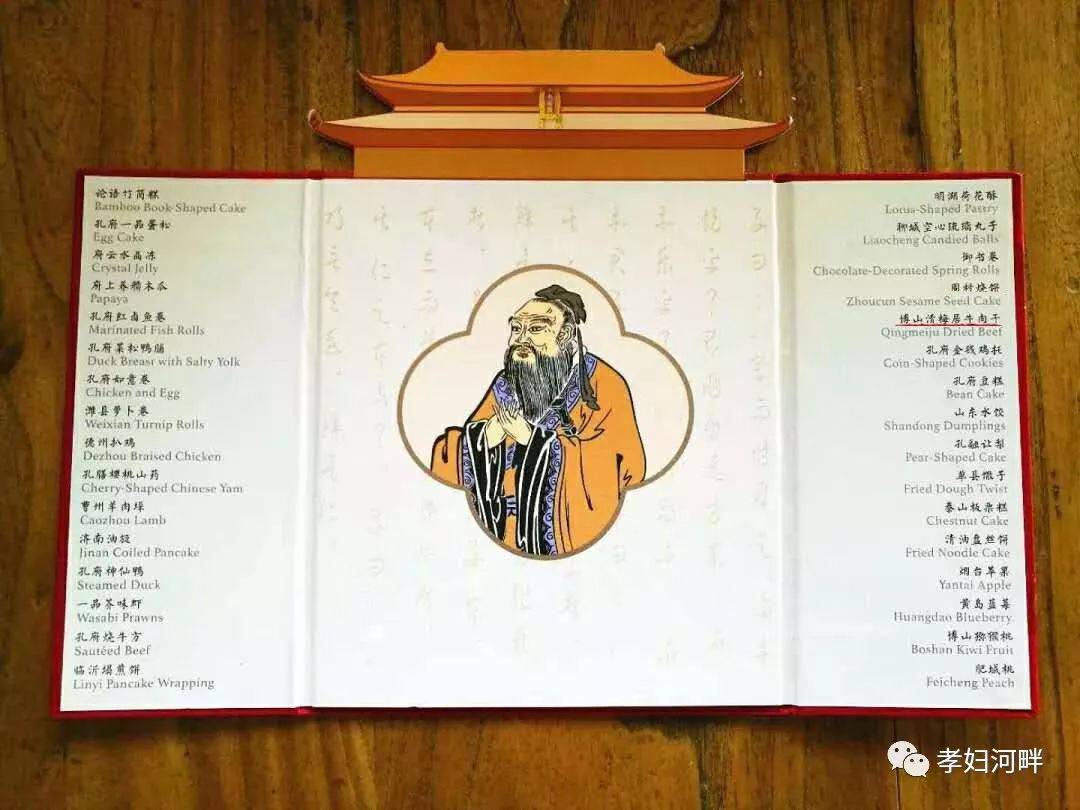 论语竹简糕
Bamboo Book-Shaped Cake
孔府一品蛋松
Egg Cake
府云水晶冻
Crystal Jelly
府上养颜木瓜
Papaya
孔府红卤鱼卷
Marinated Fish Rolls
孔府果松鸭脯
Duck Breast with Salty Yolk
孔府如意卷
Chicken and Egg
潍县萝卜卷
Weixian Turnip Rolls
德州扒鸡
Dezhou Braised Chicken
孔膳樱桃山药
Cherry-Shaped Chinese Yam
曹州羊肉垛
Caozhou Lamb
济南油旋
Jinan Coiled Pancake
孔府神仙鸭
Steamed Duck
一品芥味虾
Wasabi Prawns
孔府烧牛方
Sautéed Beef
临沂塌煎饼
Linyi Pancake Wrapping
明湖荷花酥
Lotus-Shaped Pastry
聊城空心琉璃丸子
Liaocheng Candied Balls
御书卷
Chocolate-Decorated Spring Rolls
周村烧饼
Zhoucun Sesame Seed Cake
博山清梅居牛肉干
Qingmeiju Dried Beef
孔府金钱鸡托
Coin-Shaped Cookies
孔府豆糕
Bean Cake
山东水饺
Shandong Dumplings
孔融让梨
Pear-Shaped Cake
单县馓子
Fried Dough Twist
泰山板栗糕
Chestnut Cake
清油盘丝饼
Fried Noodle Cake
烟台苹果
Yantai Apple
黄岛蓝莓
Huangdao Blueberry
博山猕猴桃
Boshan Kiwi Fruit
肥城桃
Feicheng Peach
孝妇河畔